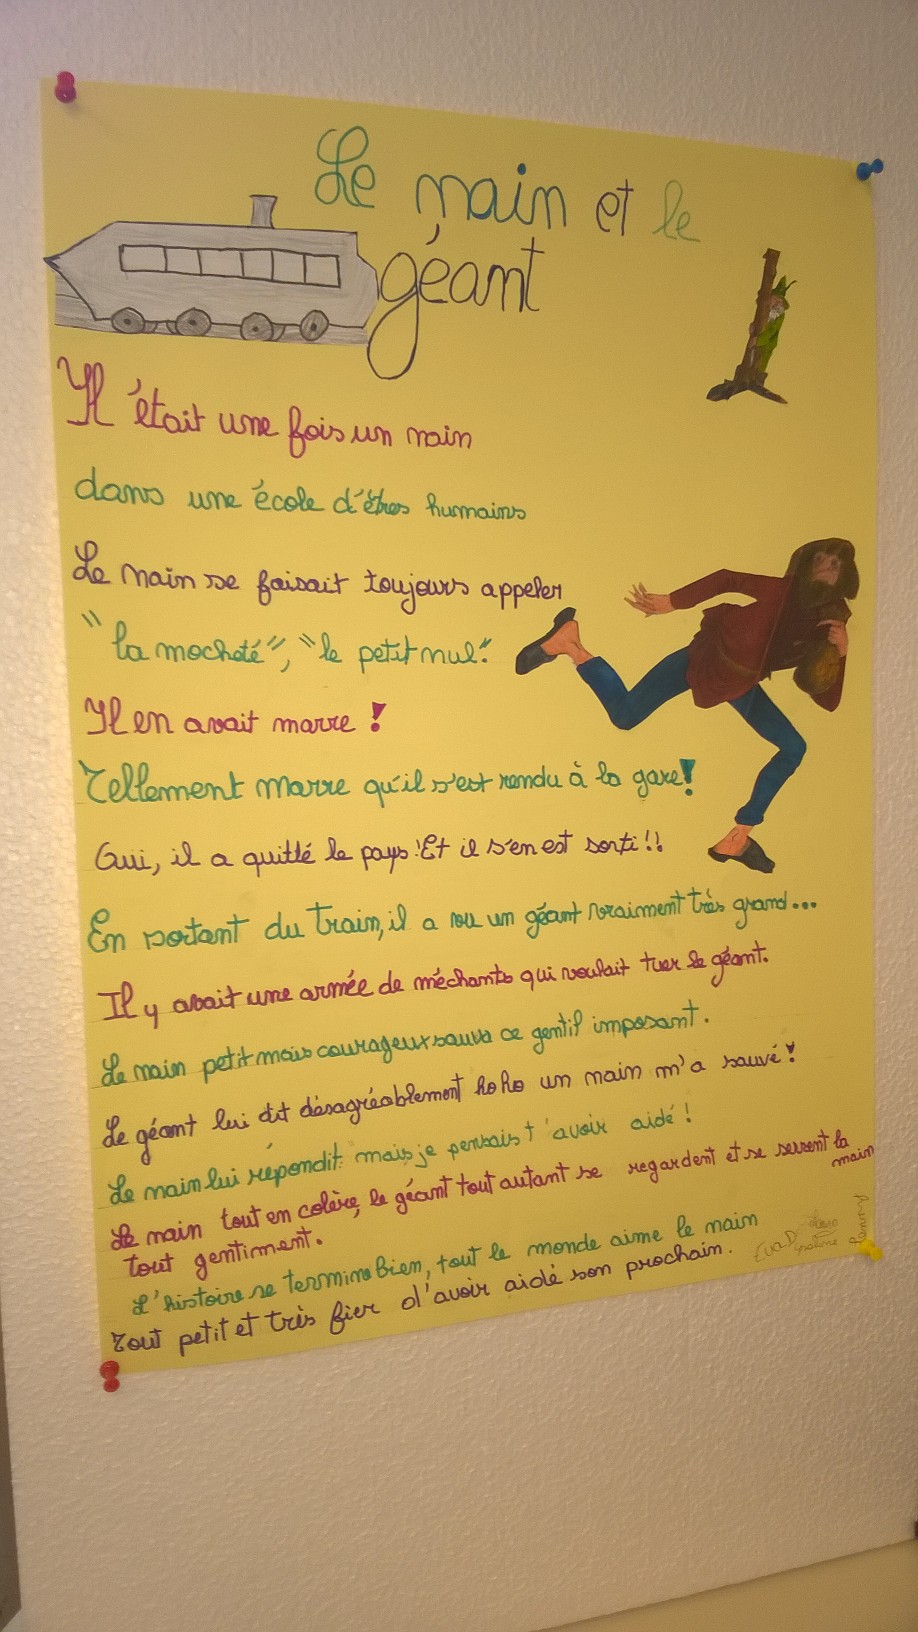 Le nain et le
géant
Il était une fois un nain
dans une école d'êtres humains
Le nain se faisait toujours appeler
"la mocheté", "le petit nul".
Il en avait marre !
Tellement marre qu'il s'est rendu à la gare!
Oui, il a quitté le pays ! Et il s'en est sorti !!
En sortant du train, il a vu un géant vraiment très grand...
Il y avait une armée de méchants qui voulait tuer le géant.
Le nain petit mais courageux sauva ce gentil imposant.
Le géant lui dit désagréablement hoho un nain m'a sauvé !
Le nain lui répondit: mais je pensais t'avoir aidé !
Le nain tout en colère, le géant tout autant se regardent et se serrent la
main
tout gentiment.
L'histoire se termine bien, tout le monde aime le nain
Tout petit et très fier d'avoir aidé son prochain.
Eva D